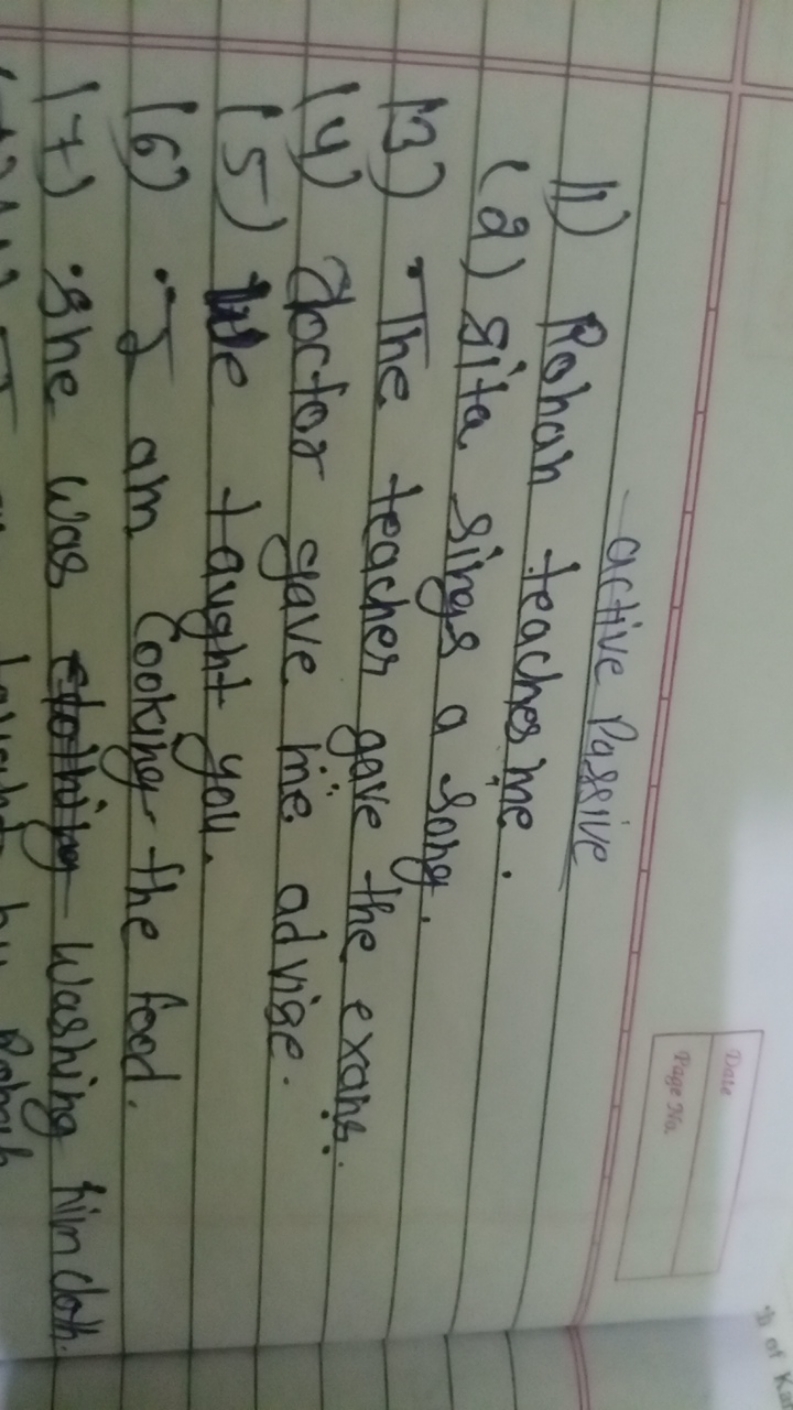 Date
Page No.
active Passive
(1) Rohan teaches me.
(2) Sita sings a song.
(3) The teacher gave the exams.
(4) doctor gave me advise.
(5) We taught you.
(6) I am cooking the food.
(7) She was washing him cloth.